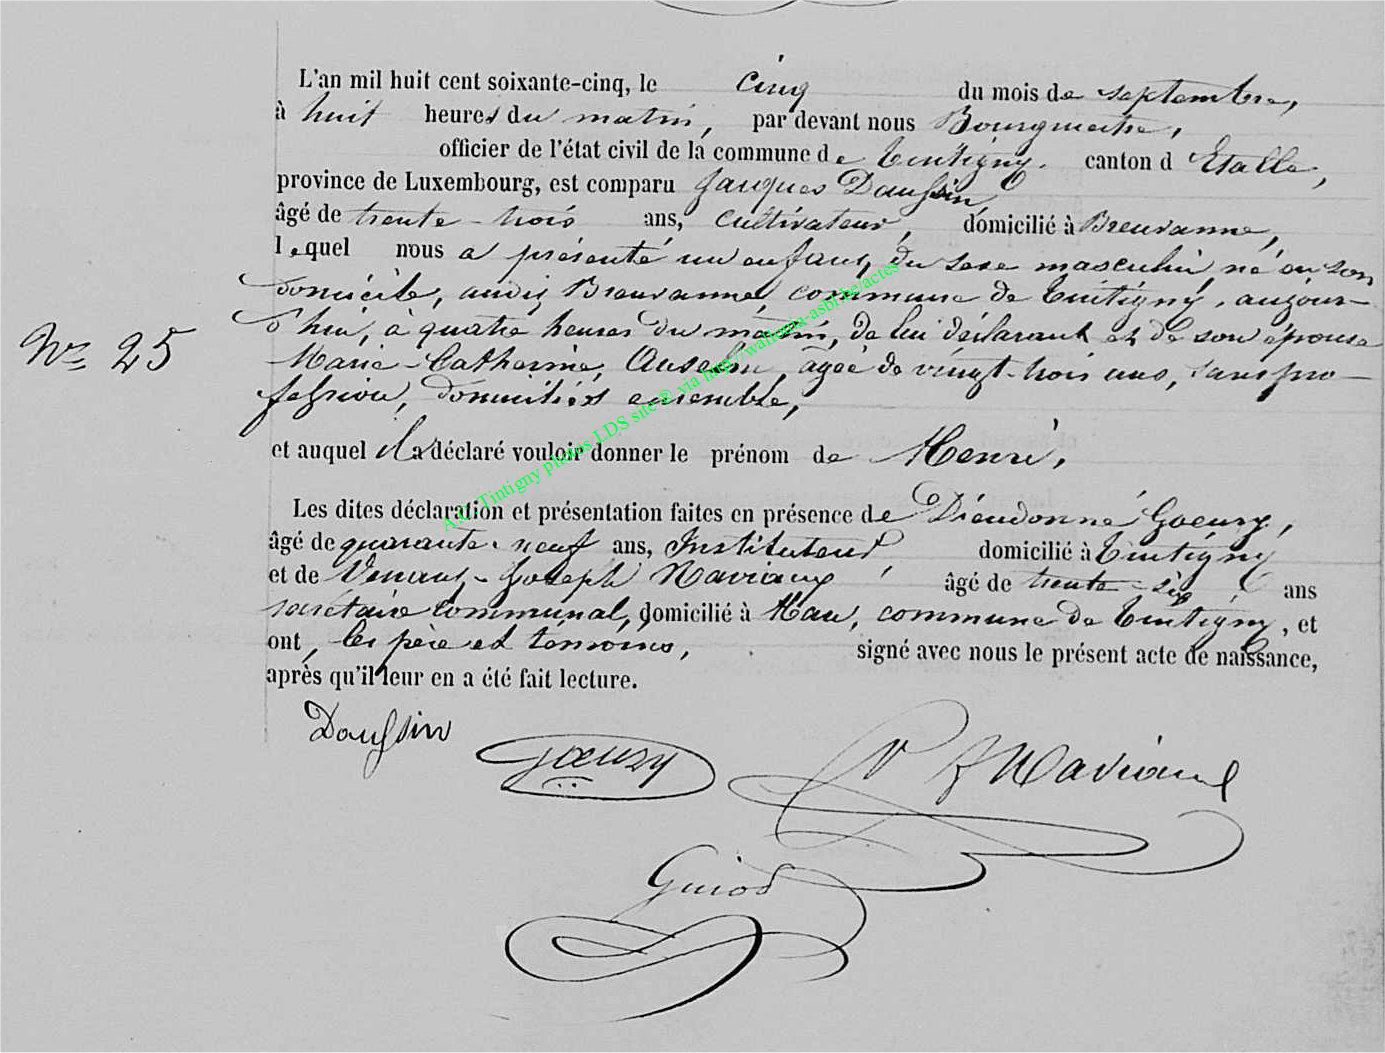 L'an mil huit cent soixante-cinq, le cinq du mois de septembre,
à huit heures du matin, par devant nous Bourgmestre,
officier de l'état civil de la commune de Tintigny, canton d Etalle,
province de Luxembourg, est comparu Jacques Daussin
âgé de trente-trois ans, cultivateur, domicilié à Breuvanne,
lequel nous a présenté un enfant du sexe masculin né en son
domicile, audit Breuvanne commune de Tintigny, aujour-
d'hui, à quatre heures du matin, de lui déclarant et de son épouse
Nº 25
Marie-Catherine, Anselme, agée de vingt-trois ans, sans pro-
fession, domiciliés ensemble,
et auquel il a déclaré vouloir donner le prénom de Henri.
Les dites déclaration et présentation faites en présence de Dieudonné Goeury,
âgé de quarante-neuf ans, Instituteur, domicilié à Tintigny
et de Venant-Joseph Naviaux, âgé de trente-six ans
secrétaire communal, domicilié à Han, commune de Tintigny, et
ont, les père et témoins, signé avec nous le présent acte de naissance,
après qu'il leur en a été fait lecture.
Daussin
Goeury
V J Naviaux
Guiot
A.C. Tintigny photos LDS site © via http://wallonia-asbl.be/actes